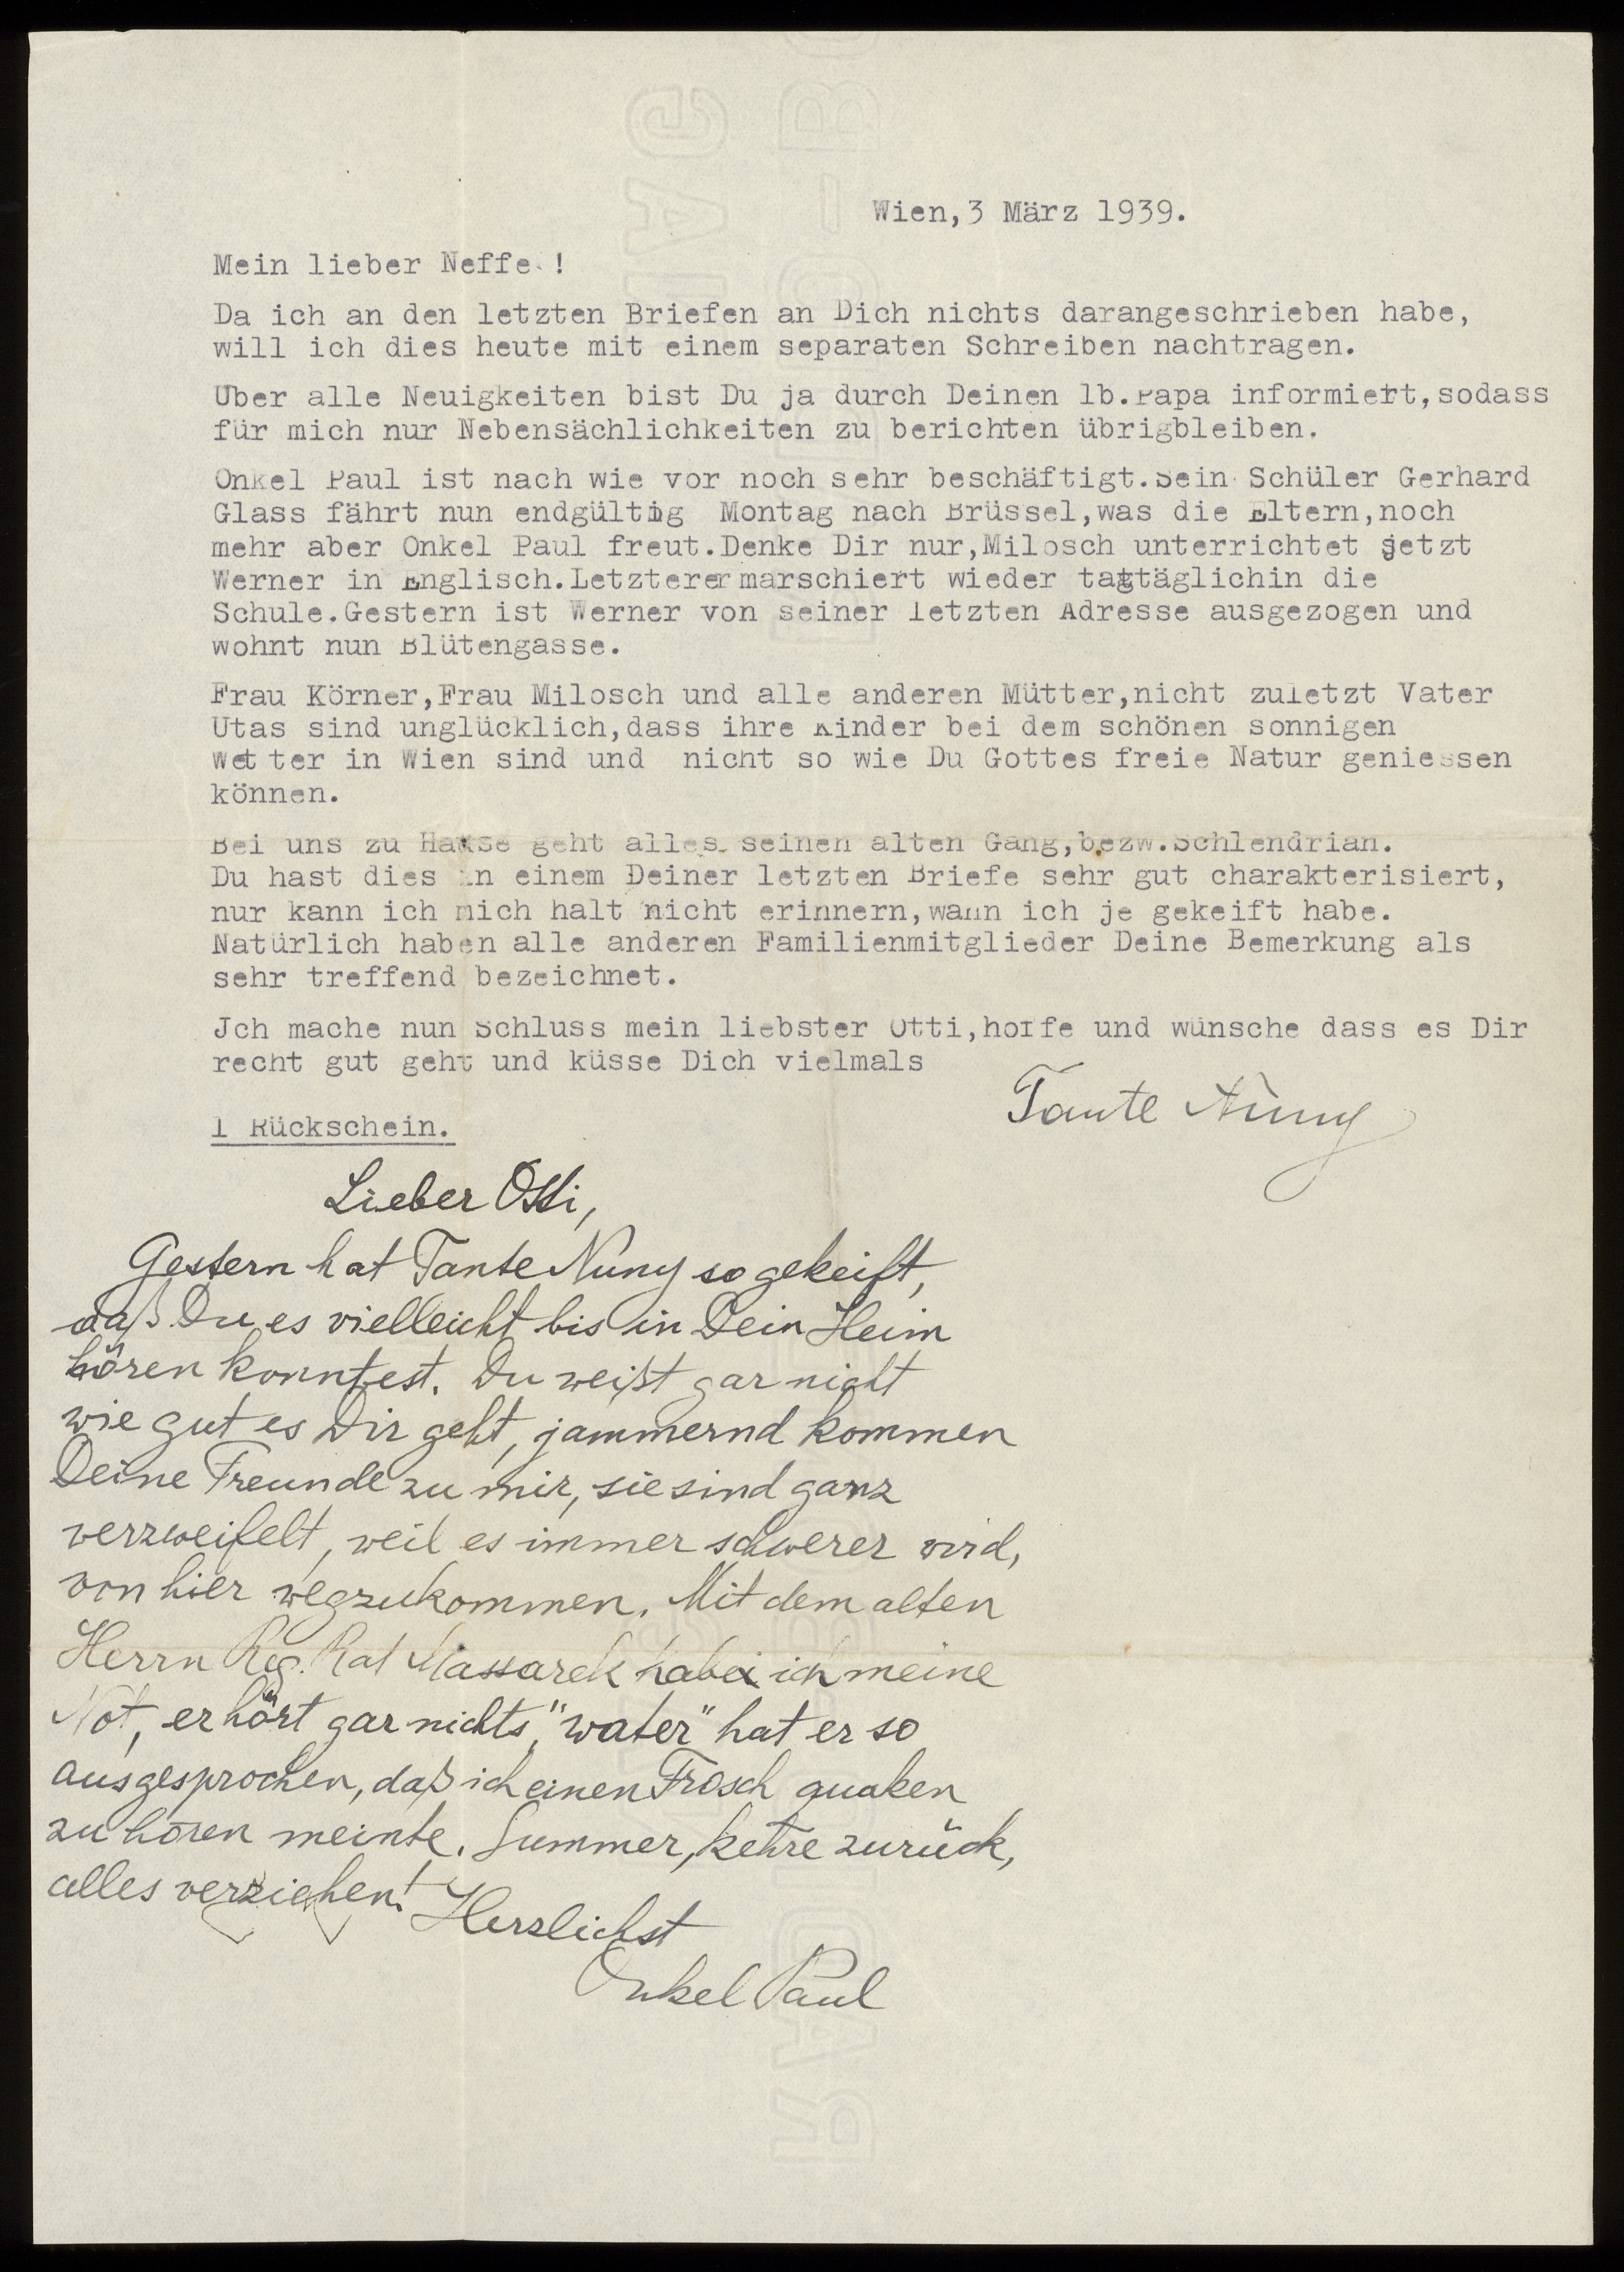 Wien,3 März 1939.
Mein lieber Neffe !
Da ich an den letzten Briefen an Dich nichts darangeschrieben habe,
will ich dies heute mit einem separaten Schreiben nachtragen.
Uber alle Neuigkeiten bist Du ja durch Deinen lb.Papa informiert,sodass
für mich nur Nebensächlichkeiten zu berichten übrigbleiben.
Onkel Paul ist nach wie vor noch sehr beschäftigt.Sein Schüler Gerhard
Glass fährt nun endgültig Montag nach Brüssel,was die Eltern,noch
mehr aber Onkel Paul freut.Denke Dir nur,Milosch unterrichtet jetzt
Werner in Englisch.Letzterer marschiert wieder tagtäglichin die
Schule.Gestern ist Werner von seiner letzten Adresse ausgezogen und
wohnt nun Blütengasse.
Frau Körner,Frau Milosch und alle anderen Mütter,nicht zuletzt Vater
Utas sind unglücklich,dass ihre Kinder bei dem schönen sonnigen
Wetter in Wien sind und nicht so wie Du Gottes freie Natur geniessen
können.
Bei uns zu Hause geht alles seinen alten Gang,bezw.Schlendrian.
Du hast dies in einem Deiner letzten Briefe sehr gut charakterisiert,
nur kann ich mich halt nicht erinnern,wann ich je gekeift habe.
Natürlich haben alle anderen Familienmitglieder Deine Bemerkung als
sehr treffend bezeichnet.
Jch mache nun Schluss mein liebster Otti,hoffe und wünsche dass es Dir
recht gut geht und küsse Dich vielmals
Tante Nuny
1 Rückschein.
Lieber Otti,
Gestern hat Tante Nuny so gekeift,
daß Du es vielleicht bis in Dein Heim
hören konntest. Du weißt gar nicht
wie gut es Dir geht, jammernd kommen
Deine Freunde zu mir, sie sind ganz
verzweifelt, weil es immer schwerer wird,
von hier wegzukommen. Mit dem alten
Herrn Reg. Rat Massarek habe ich meine
Not, er hört gar nichts, "water" hat er so
ausgesprochen, daß ich einen Frosch quaken
zu hören meinte. Summer, kehre zurück,
alles verziehen!
Herzlichst
Onkel Paul